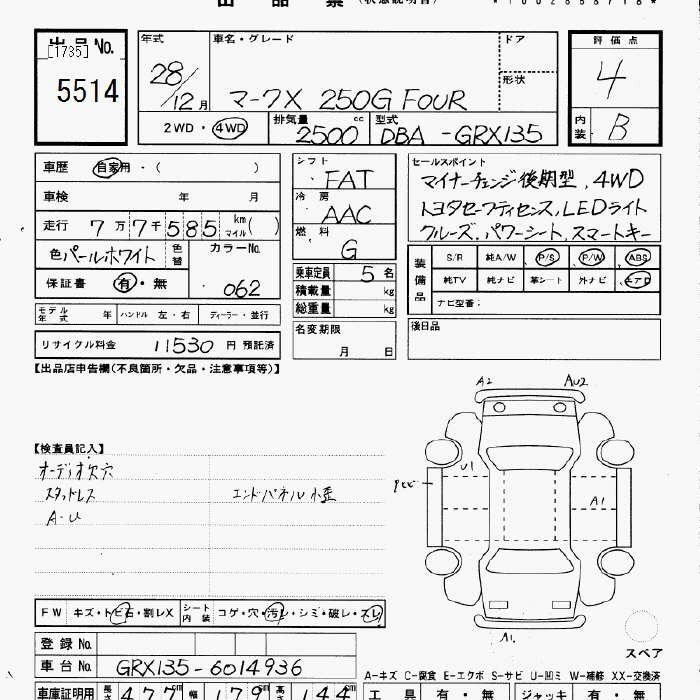 出品票 (状態説明書) *1002858718*
出品No.
[1735]
5514
年式
28/12月
車名・グレード
マークX 250G FOUR
ドア
形状
2WD・4WD
排気量 cc
2500
型式
DBA-GRX135
評価点
4
内装 B
車歴 自家用・( )
車検 年 月
走行 7万7千585 km マイル ( )
色 パールホワイト 色替
カラーNo.
062
保証書 有・無
モデル年式 年 ハンドル 左・右 ディーラー・並行
リサイクル料金 11530円 預託済
シフト
FAT
冷房
AAC
燃料
G
乗車定員 5名
積載量 kg
総重量 kg
名変期限
月 日
セールスポイント
マイナーチェンジ後期型、4WD
トヨタセーフティセンス、LEDライト
クルーズ、パワーシート、スマートキー
装備品
S/R 純A/W P/S P/W ABS
純TV 純ナビ 革シート 外ナビ エアB
ナビ型番:
後日品
【出品店申告欄(不良箇所・欠品・注意事項等)】
【検査員記入】
オーディオ欠穴
スタッドレス
A-U
エンドパネル小歪
A2 AU2
U1
A1
A1
スペア
FW キズ・トビ石・割レX シート内装 コゲ・穴・汚レ・シミ・破レ・スレ
登録No.
車台No. GRX135-6014936
A-キズ C-腐食 E-エクボ S-サビ U-凹ミ W-補修 XX-交換済
車庫証明用 長さ 477cm 幅 179cm 高さ 144cm
工具 有・無 ジャッキ 有・無